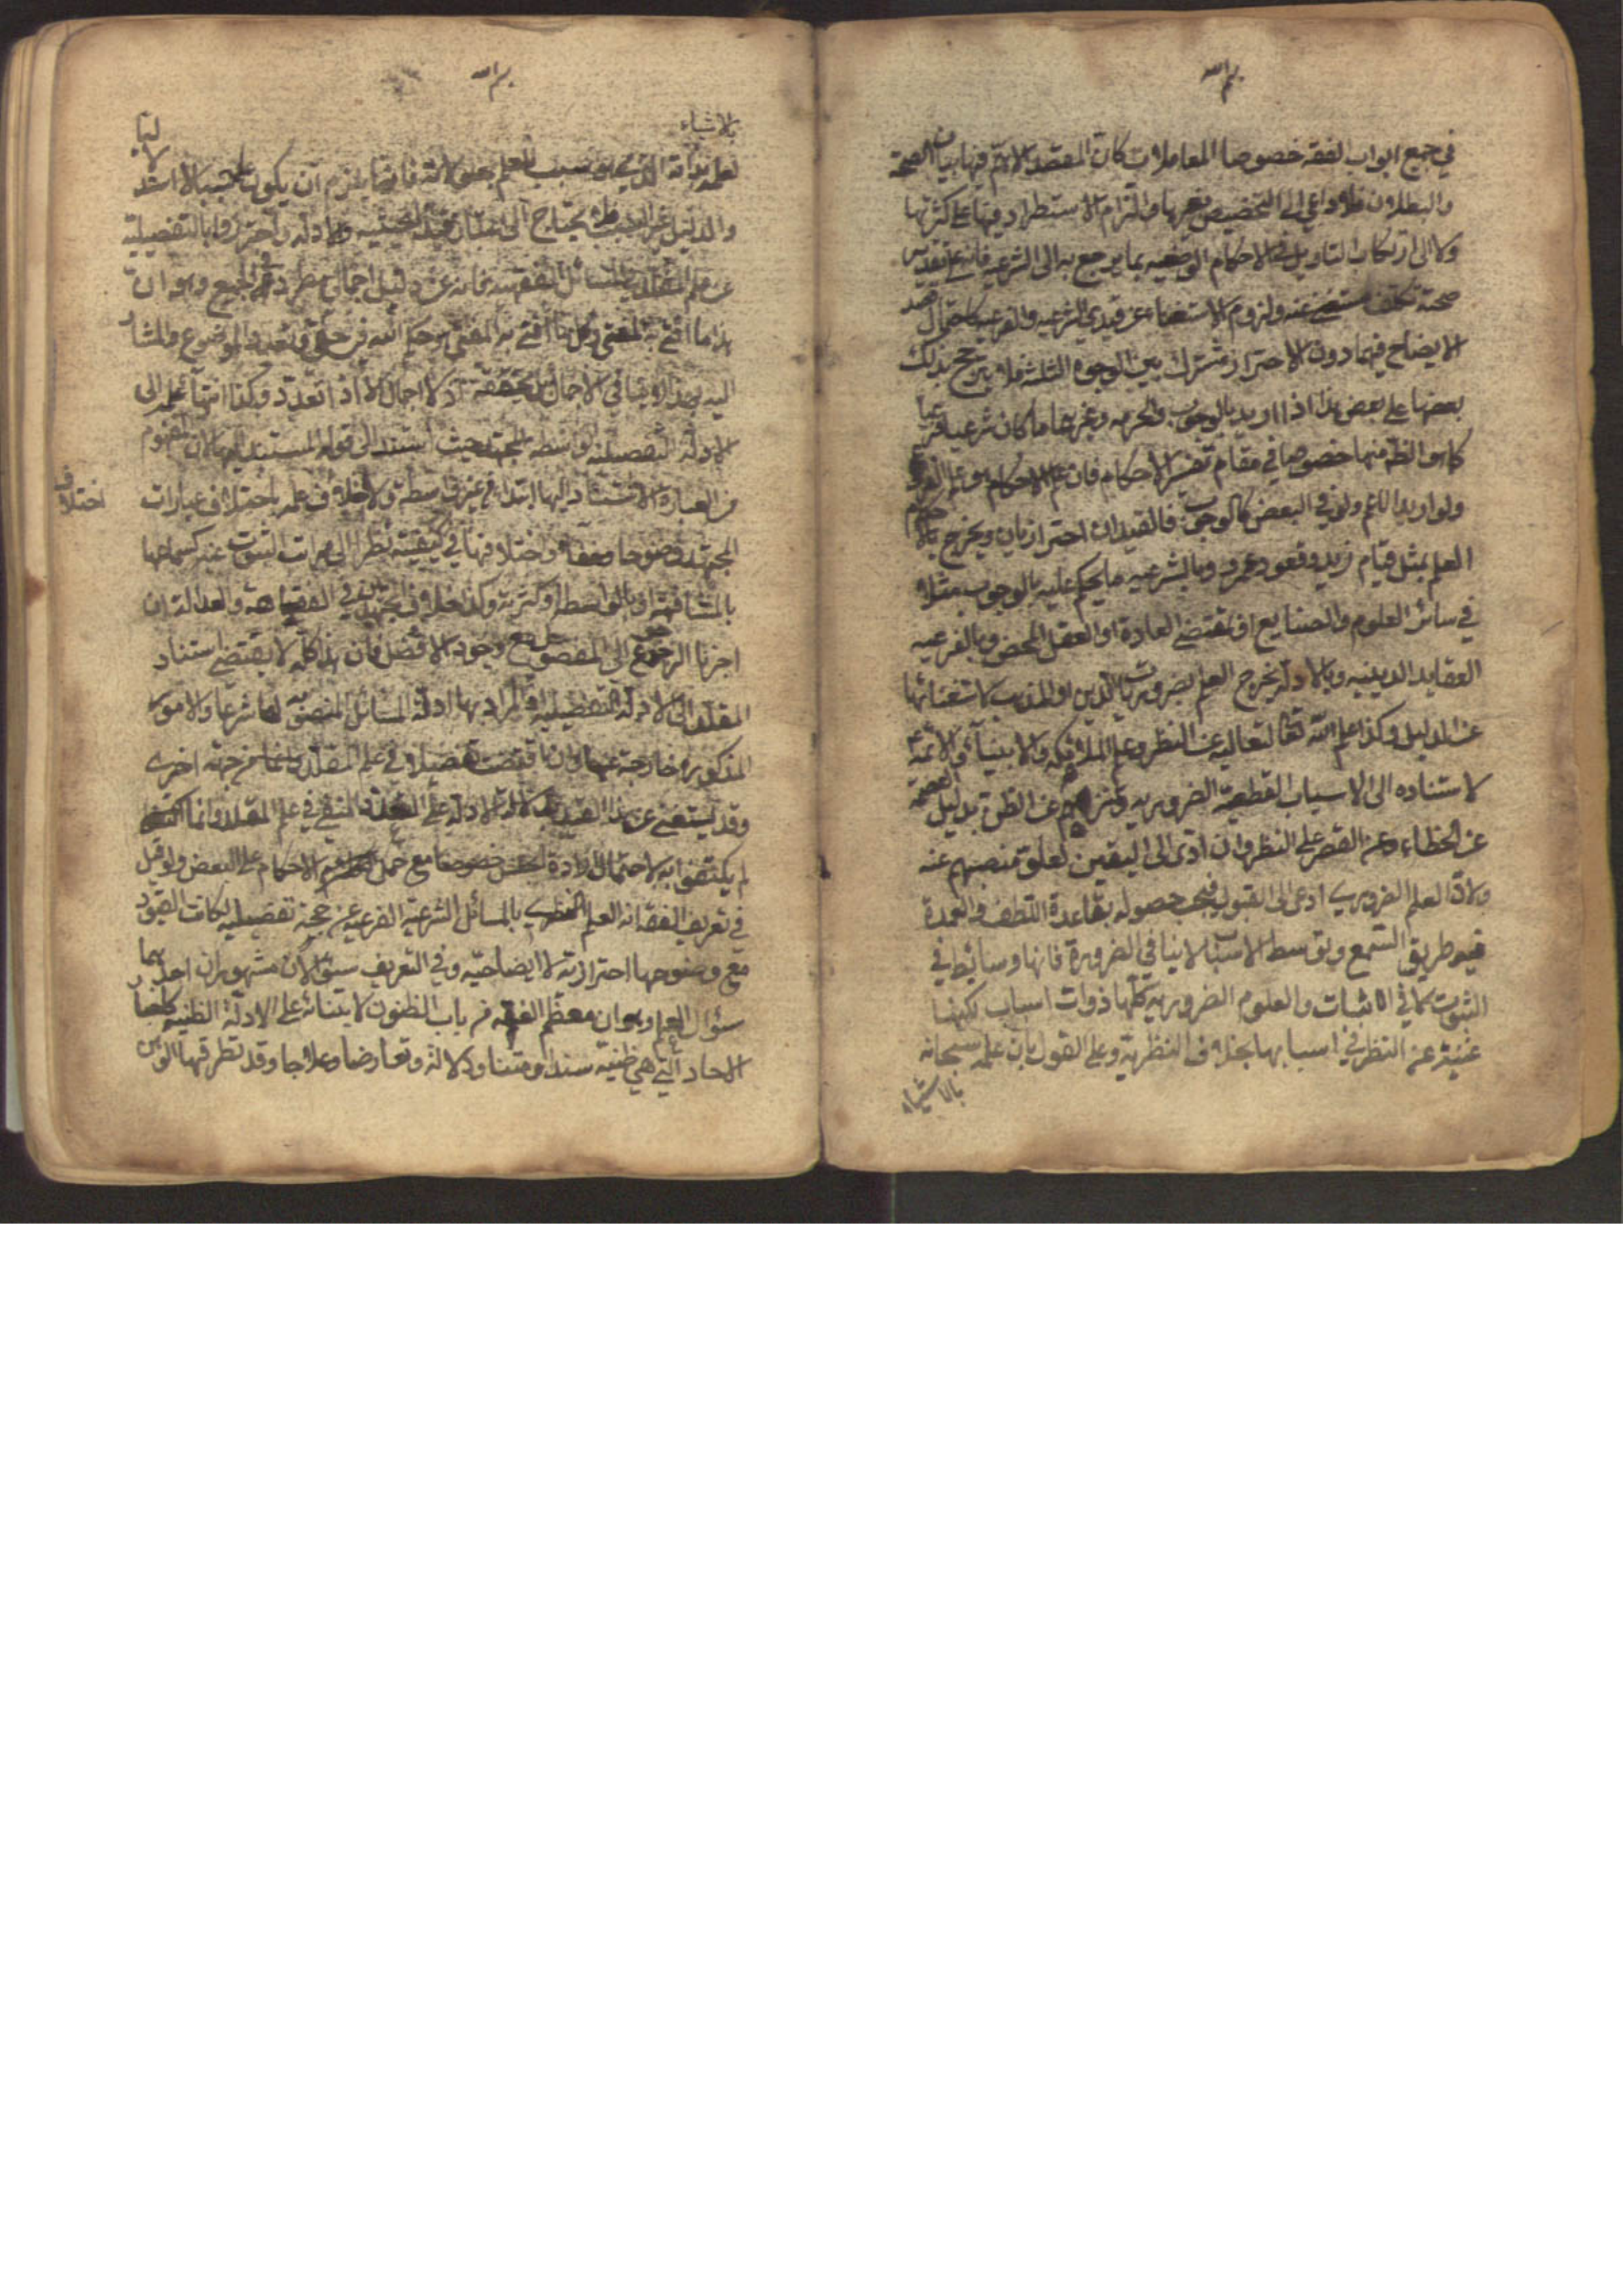 بسم الله
في جميع ابواب الفقه خصوصا المعاملات كان المقصد الاهم فيها بيان الصحة
والبطلان فلا داعي الى التخصيص بغيرها والتزام الاستطراد فيها على كثرتها
ولا الى ارتكاب التاويل في الاحكام الوضعيه بما يرجع به الى الشرعيه فانه على تقدير
صحته تكلف مستغنى عنه ولزوم الاستغناء عن قيدي الشرعيه والفرعيه كاحتمال قصد
الايضاح فيهما دون الاحتراز مشترك بين الوجوه الثلثة فلا يترجح بذلك
بعضها على بعض هذا اذا اريد بالوجوب والحرمه وغيرهما ما كان شرعيا فرعيا
كما هو الظ منها خصوصا في مقام تفسير الاحكام فان علم الاحكام هو علم الفروع
ولو اريد الاعم ولو في البعض كالوجوب فالقيدان احترازيان ويخرج بالاحكام
العلم بمثل قيام زيد وقعود عمرو وبالشرعيه ما يحكم عليه بالوجوب مثلا
في سائر العلوم والصنايع او بمقتضى العادة او العقل المحض وبالفرعيه
العقايد الدينيه وبالادلة يخرج العلم بضروريات الدين او المذهب لاستغنائها
عن الدليل وكذا علم الله تعالى لتعاليه عن النظر وعلم الملائكه والانبياء والائمة
لاستناده الى الاسباب القطعية الضروريه وتنزههم عن الظن بدليل العصمة
عن الخطاء وعن القصر على النظر وان ادى الى اليقين لعلو منصبهم عنه
ولان العلم الضروري ادعى الى القبول فيجب حصوله بقاعدة اللطف والعمدة
فيه طريق السمع وتوسط الاسباب لا ينافي الضرورة فانها وسائط في
الثبوت كما في الاثبات والعلوم الضروريه كلها ذوات اسباب لكنها
غنية عن النظر في اسبابها بخلاف النظرية وعلى القول بان علمه سبحانه
بالاشياء
بسم الله
بالاشياء
لعلمه بذاته الذي هو سبب للعلم بمعلولاته فانما يلزم ان يكون علمه سببا لا استدلاليا
والدليل غير السبب فلا يحتاج الى اعتبار قيد الحيثيه والادلة واحترزوا بالتفصيلية
عن علم المقلد في المسائل الفقهيه فانه عن دليل اجمالي مطرد في الجميع وهو ان
هذا ما افتى به المفتي وكل ما افتى به المفتي هو حكم الله في حقي وتعدد الموضوع والمشار
اليه بهذا لا ينافي الاجمال بل يحققه اذ لا اجمال الا اذا تعدد وكذا انتهاء علمه الى
الادلة التفصيليه بواسطه المجتهد حيث استند الى قوله المستند اليها لان المفهوم
من العبارة الاستناد اليها ابتداء من غير واسطة ولا اختلاف علمه باختلاف عبارات
اختلاف
المجتهد وضوحا وخفاء واختلافها في كيفيته نظرا الى مراتب الثبوت عنه كسماعها
بالمشافهة او بالواسطه او كتربة وكذا اختلاف المجتهدين في الفقاهة والعدالة ان
اجزنا الرجوع الى المفضول مع وجود الافضل فان هذا كله لا يقتضي استناد
المقلد الى الادلة التفصيليه اذ المراد بها ادلة المسائل المنصوبه لها شرعا والامور
المذكورة خارجة عنها وان اقتضت تفصيلا في علم المقلد فانما من جهة اخرى
وقد يستغنى عن هذا القيد بدلالة الادلة على التعدد المنفي في علم المقلد وانما
لم يكتفوا به لاحتمال ارادة الجنس خصوصا مع حمل الاحكام على البعض ولو قيل
في تعريف الفقه انه العلم النظري بالمسائل الشرعية الفرعيه عن حجة تفصيليه لكانت القيود
مع وضوحها احترازية لا ايضاحيه وفي التعريف سؤالان مشهوران احدهما
سؤال العلم وهو ان معظم الفقه من باب الظنون لابتنائه على الادلة الظنيه كاخبار
الاحاد التي هي ظنيه سندا ومتنا ودلالة وتعارضا وعلاجا وقد تطرق فيها الوهن